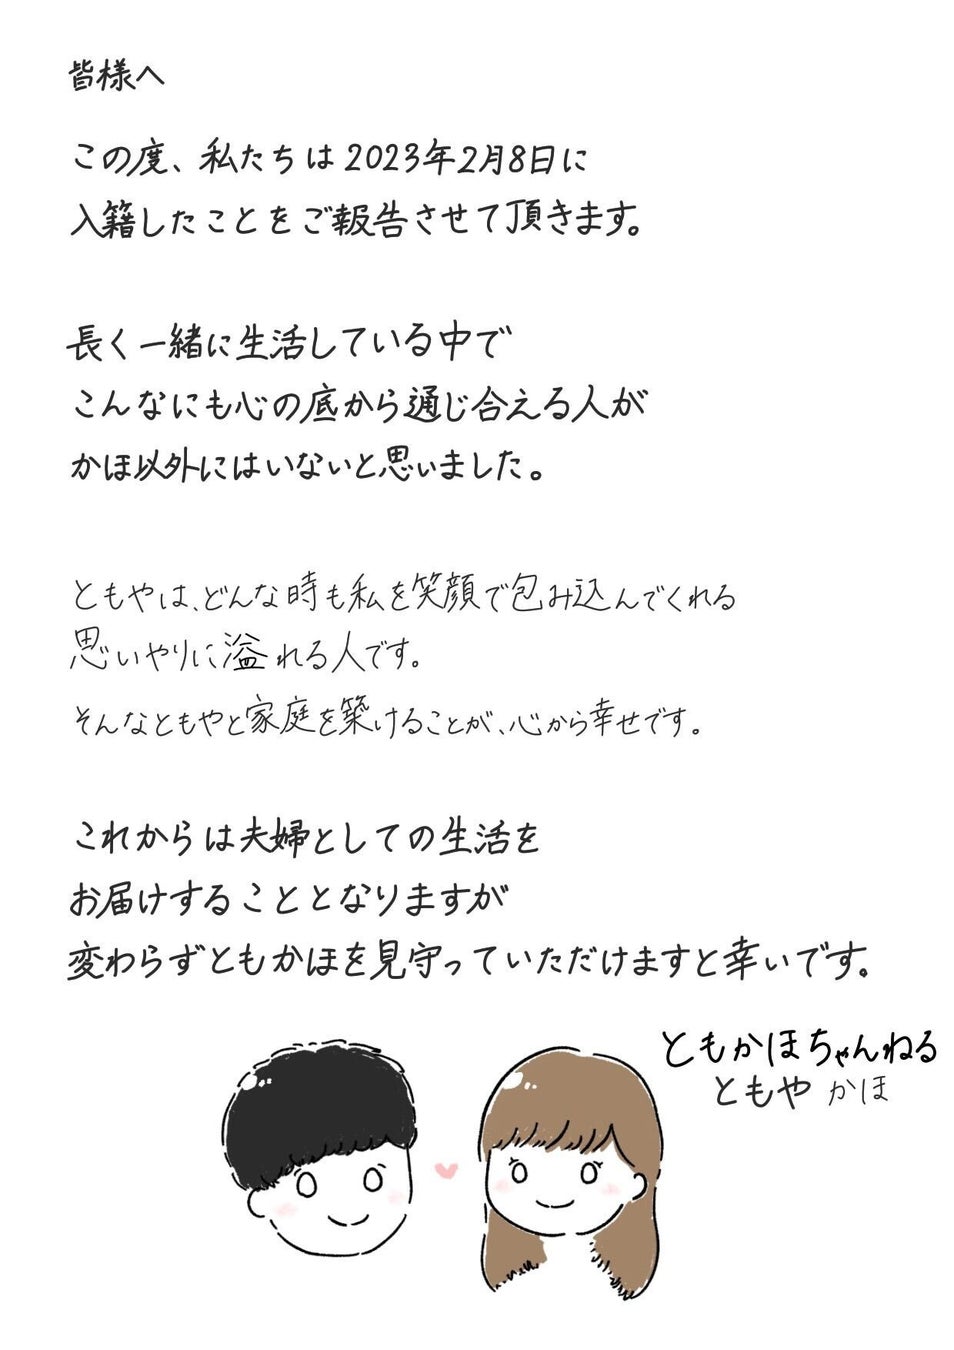 皆様へ
この度、私たちは2023年2月8日に
入籍したことをご報告させて頂きます。
長く一緒に生活している中で
こんなにも心の底から通じ合える人が
かほ以外にはいないと思いました。
ともやは、どんな時も私を笑顔で包み込んでくれる
思いやりに溢れる人です。
そんなともやと家庭を築けることが、心から幸せです。
これからは夫婦としての生活を
お届けすることとなりますが
変わらずともかほを見守っていただけますと幸いです。
ともかほちゃんねる
ともや かほ